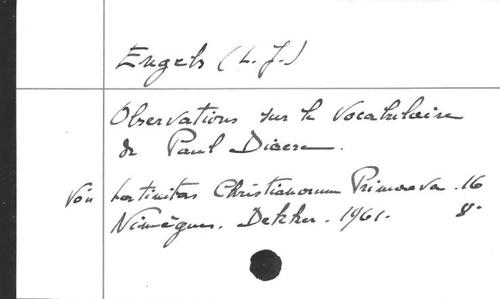 Engels (L. J.)
Observations sur le vocabulaire
de Paul Diacre.
Voir Latinitas Christianorum Primaeva. 16
Nimègue. Dekker. 1961. 8°